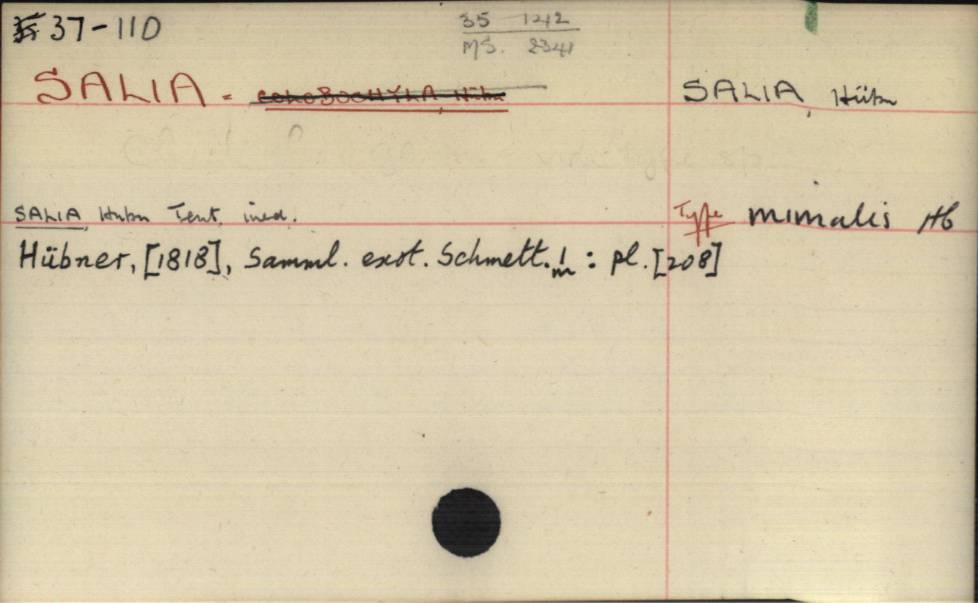 37-110
35 1242
MS. 2341
SALIA = COLOBOCHYLA, Hübn
SALIA, Hübn
SALIA Hubn Tent, ined.
Type mimalis Hb
Hübner, [1818], Samml. exot. Schmett. 1 : pl. [208]